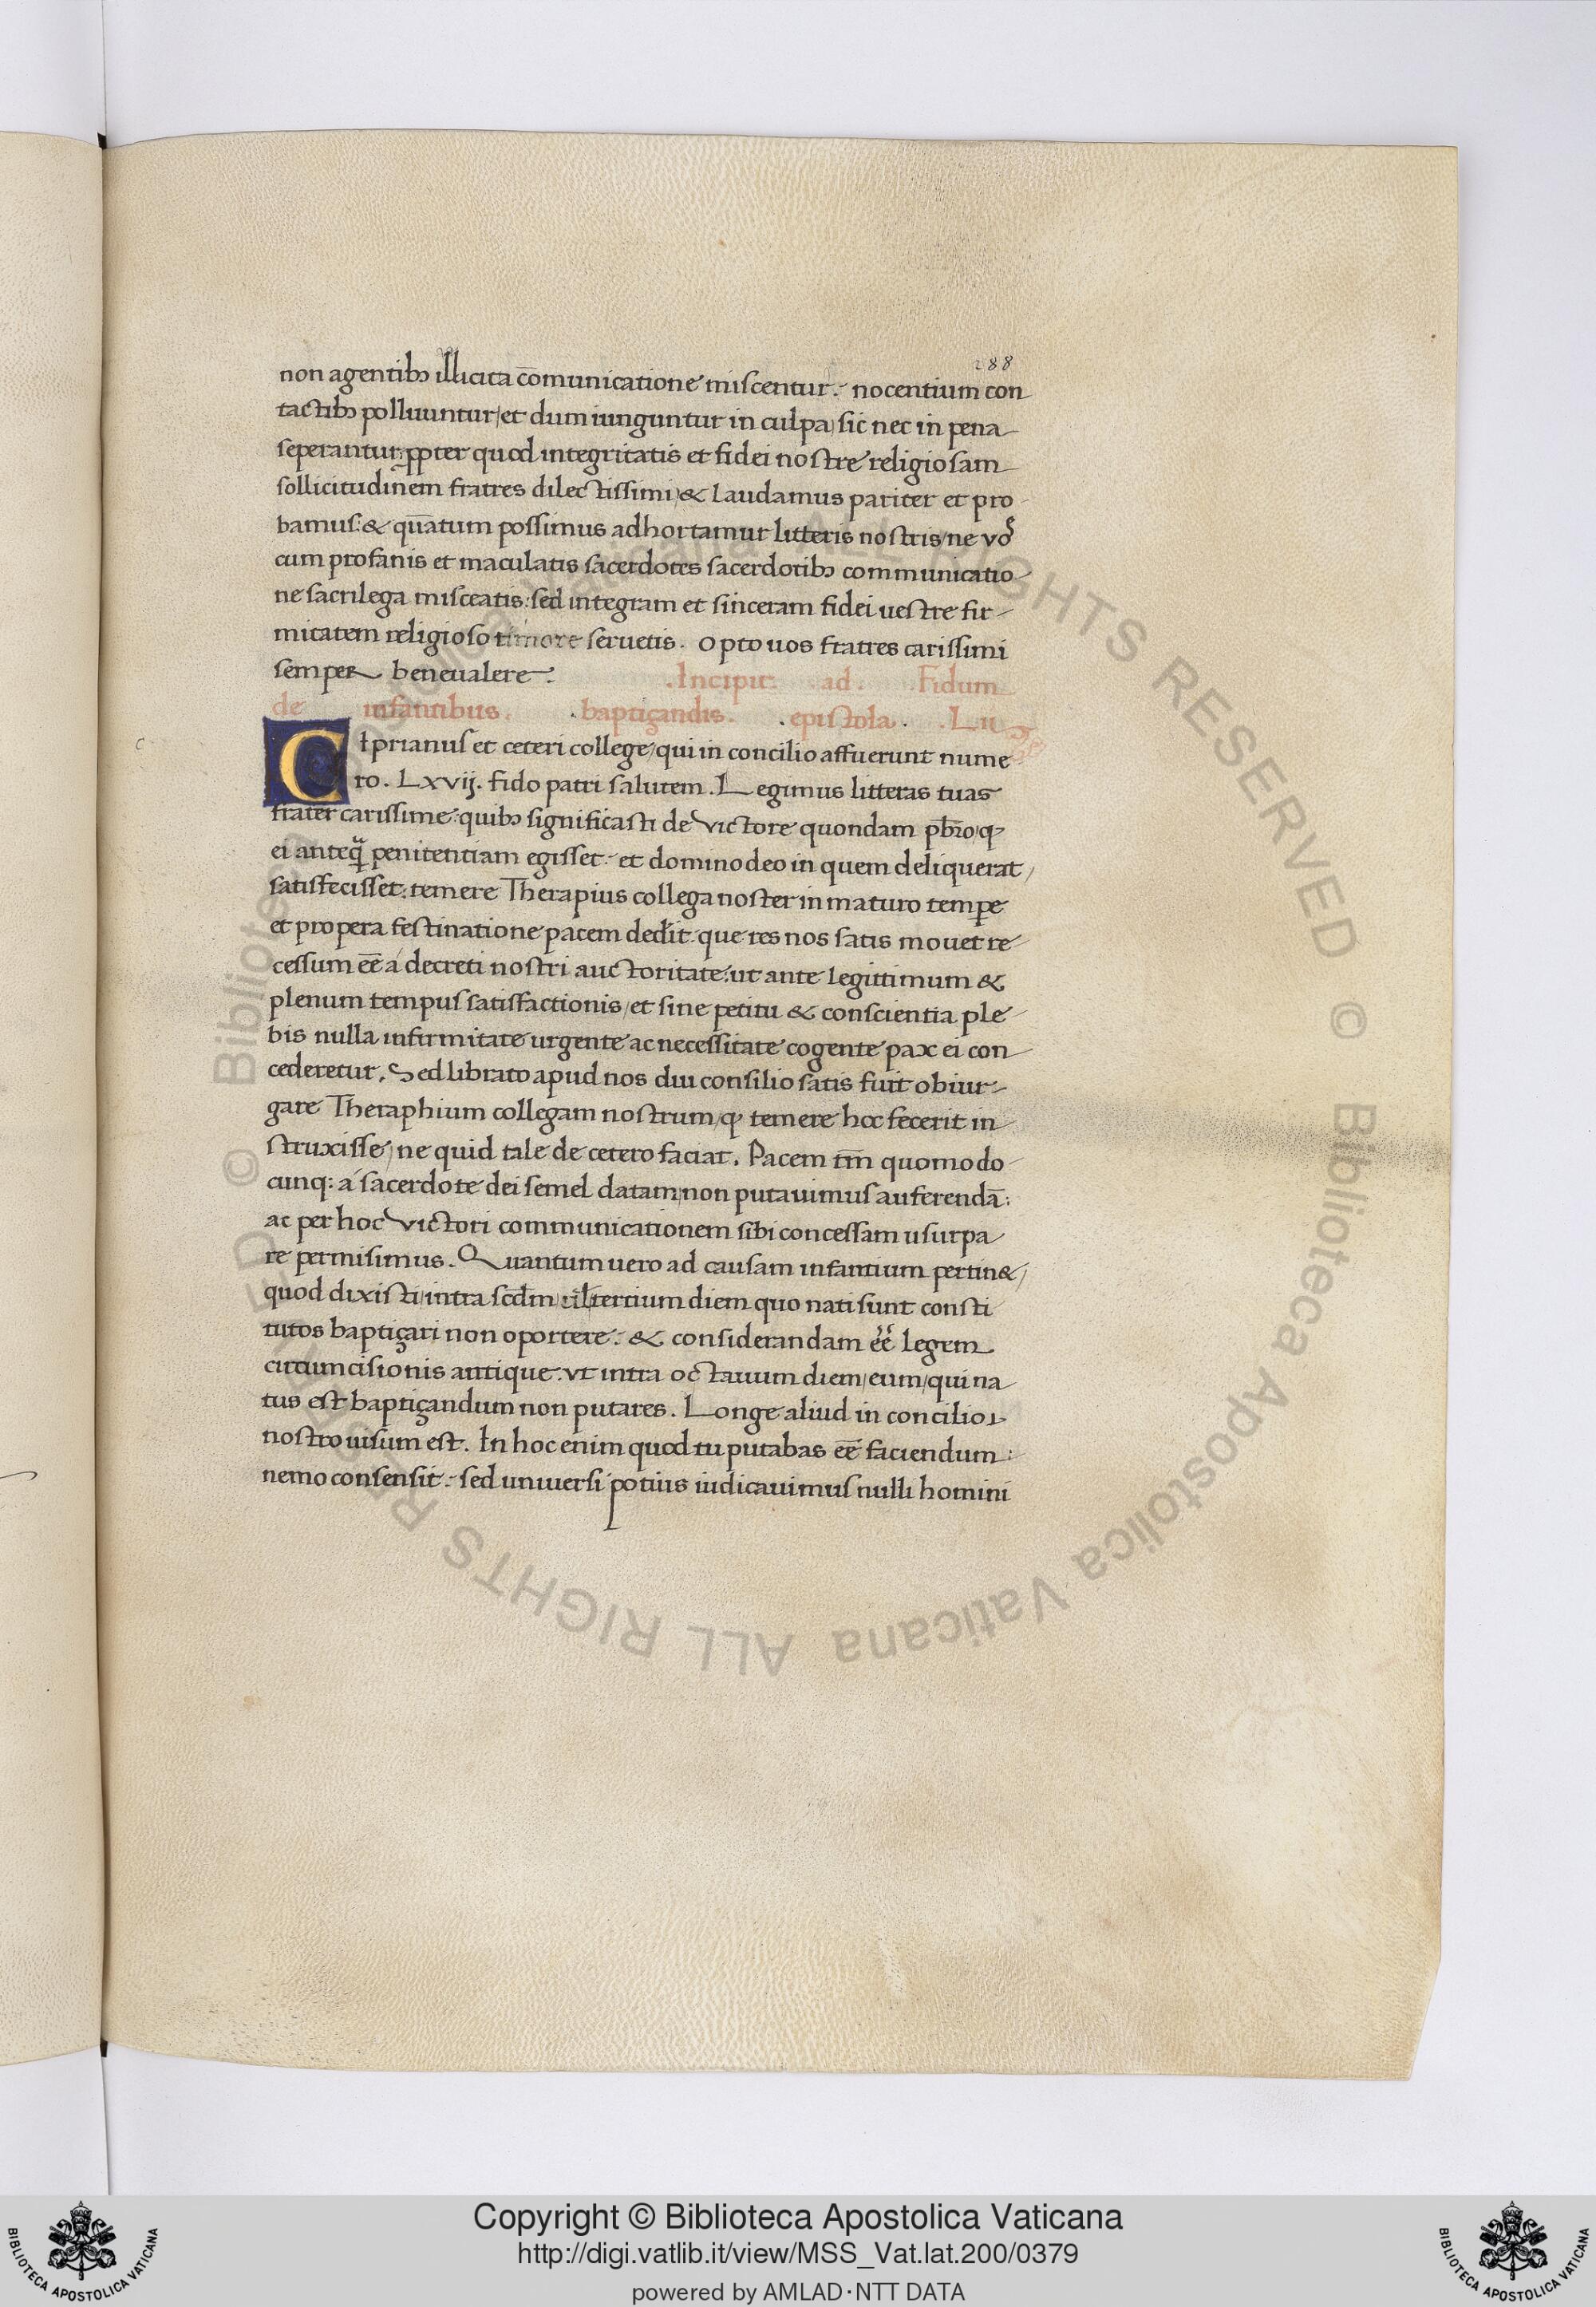 288
non agentibꝫ illicita cōmunicatione miscentur: nocentium con
tactibꝫ polluuntur/et dum iunguntur in culpa/sic nec in pena
seperantur: ꝓpter quod integritatis et fidei nostre religiosam
sollicitudinem fratres dilectissimi/& laudamus pariter et pro
bamus: & quātum possimus adhortamur litteris nostris/ne vos
cum profanis et maculatis sacerdotes sacerdotibꝫ communicatio
ne sacrilega misceatis: sed integram et sinceram fidei uestre fir-
mitatem religioso timore seruetis. Opto uos fratres carissimi
semper beneualere:
.Incipit. ad. Fidum
de infantibus. .baptiçandis. .epistola. .Lu
Ciprianus et ceteri college/qui in concilio affuerunt nume
ro. Lxvij. fido patri salutem. Legimus litteras tuas
frater carissime: quibꝫ significasti de Victore quondam pb̄ro/ꝙ
ei anteq̄ penitentiam egisset: et domino deo in quem deliquerat/
satisfecisset: temere Therapius collega noster in maturo temꝑe
et propera festinatione pacem dedit: que res nos satis mouet re
cessum eē á decreti nostri auctoritate: ut ante legittimum &
plenum tempus satisfactionis/et sine petitu & conscientia ple
bis nulla infirmitate urgente ac necessitate cogente pax ei con
cederetur. Sed librato apud nos diu consilio satis fuit obiur-
gare Theraphium collegam nostrum/ꝙ temere hoc fecerit in
struxisse/ne quid tale de cetero faciat. Pacem tm̄ quomodo
cunq: á sacerdote dei semel datam/non putauimus auferendā:
ac per hoc Victori communicationem sibi concessam usurpa
re permisimus. Quantum uero ad causam infantium pertin&/
quod dixisti/intra scd̄m ul̄ tertium diem quo nati sunt consti
tutos baptiçari non oportere: & considerandam eē legem
circumcisionis antique: vt intra octauum diem/eum/qui na
tus est baptiçandum non putares. Longe aliud in concilio
nostro uisum est. In hoc enim quod tu putabas eē faciendum:
nemo consensit: sed uniuersi potius iudicauimus nulli homini
© Biblioteca Apostolica Vaticana ALL RIGHTS RESERVED
Copyright © Biblioteca Apostolica Vaticana
http://digi.vatlib.it/view/MSS_Vat.lat.200/0379
powered by AMLAD·NTT DATA
BIBLIOTECA APOSTOLICA VATICANA
BIBLIOTECA APOSTOLICA VATICANA